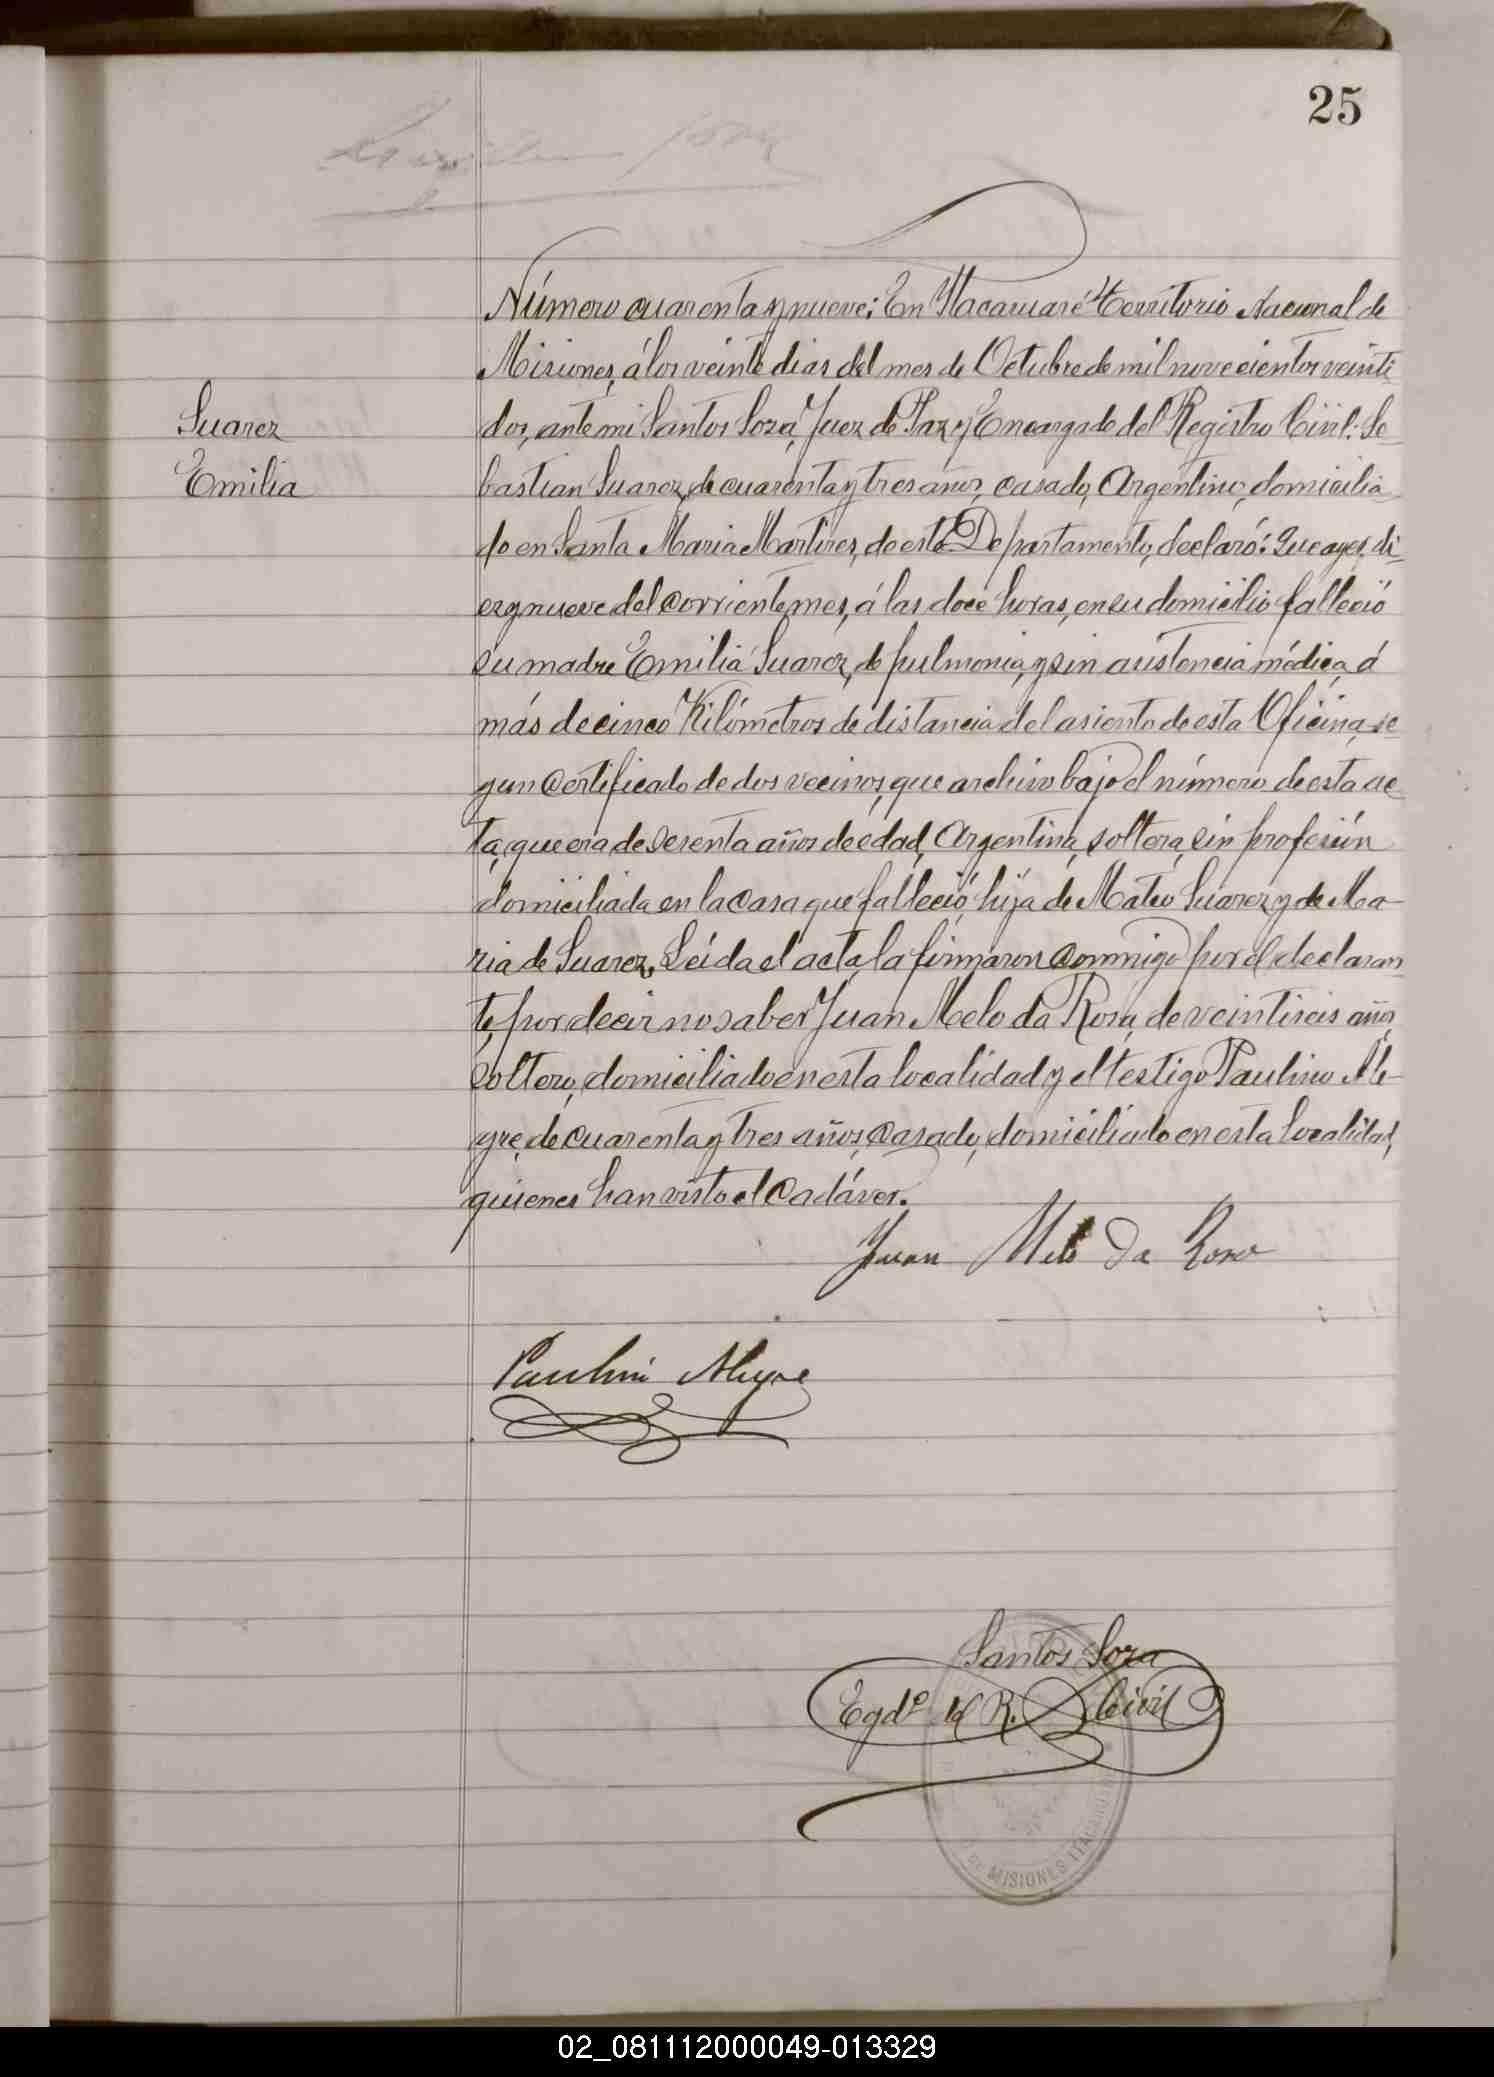 25
Número cuarenta y nueve: En Itacaruaré Territorio Nacional de
Misiones, á los veinte dias del mes de Octubre de mil novecientos veinti-
Suarez
Emilia
dos, ante mi Santos Soza, Juez de Paz y Encargado del Registro Civil: Se-
bastian Suarez, de cuarenta y tres años, casado, Argentino, domicilia-
do en Santa Maria Martires, de este Departamento, declaró: Que ayer, di-
ez y nueve del corriente mes, á las doce horas, en su domicilio falleció
su madre Emilia Suarez, de pulmonia, y sin asistencia médica, á
más de cinco Kilómetros de distancia del asiento de esta Oficina, se-
gun certificado de dos vecinos, que archivo bajo el número de esta ac-
ta, que era de sesenta años de edad, Argentina, soltera, sin profesión
domiciliada en la casa que falleció, hija de Mateo Suarez y de Ma-
ria de Suarez. Leida el acta, la firmaron conmigo por el declaran-
te, por decir no saber Juan Melo da Rosa, de veintiseis años,
soltero, domiciliado en esta localidad y el testigo Paulino Ale-
gre, de cuarenta y tres años, casado, domiciliado en esta localidad,
quienes han visto el cadáver.
Juan Melo Da Rosa
Paulino Alegre
Santos Soza
Egdo del R. Civil
DE MISIONES ITACARUARÉ
02_081112000049-013329